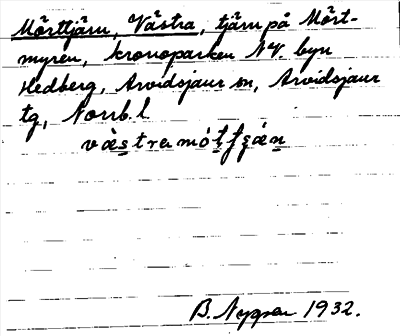 Mörttjärn, Västra, tjärn på Mört-
myren, kronoparken NV. byn
Hedberg, Arvidsjaur sn, Arvidsjaur
tg, Norrb. l.
B. Nygren 1932.